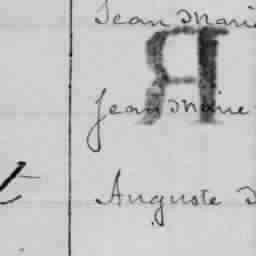 Jean Marie
Я
Jean Marie
Auguste